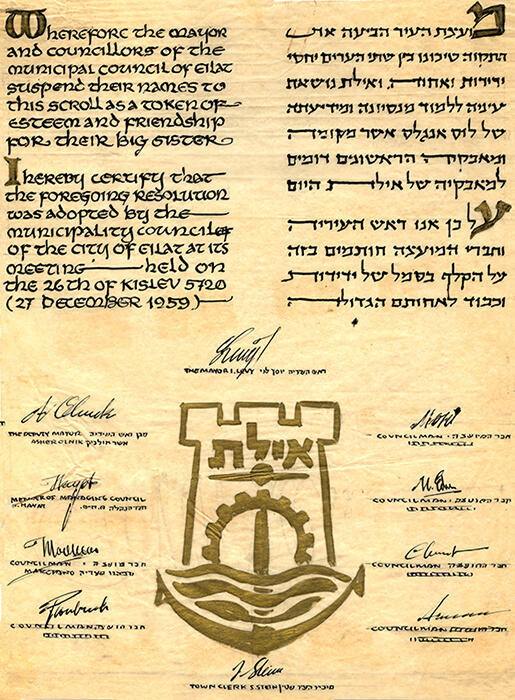 Wherefore the Mayor
and councillors of the
municipal council of Eilat
stispend their names to
this scroll as a token of
esteem and friendship
for their big sister
I hereby certify that
the foregoing resolution
was adopted by the
municipality council of
of the city of Eilat at its
meeting held on
the 26th of Kislev 5720
(27 December 1959)
מועצת העיר הביעה את
התקוה שיכונו בין שתי הערים יחסי
ידידות ואחוה, ואילת נושאת
עיניה ללמוד מנסיונה ומידיעתה
של לוס אנגלס אשר מקומה
ומאבקיה הראשונים דומים
למאבקיה של אילת היום
על כן אנו ראש העיריה
וחברי המועצה חותמים בזה
על הקלף בסמל של ידידות
וכבוד לאחותם הגדולה
THE MAYOR I. LEVY ראש העריה יוסף לוי
THE DEPUTY MAYOR סגן ראש העיריה
ASHER OLNIK
MEMBER OF MANAGING COUNCIL
H. HAYAT
COUNCILMAN חבר מועצה
MARCIANO
COUNCILMAN חבר מועצה
COUNCILMAN חבר המועצה
COUNCILMAN חבר המועצה
COUNCILMAN חבר המועצה
COUNCILMAN חבר המועצה
אילת
TOWN CLERK S. STEIN מזכיר העיר שטין